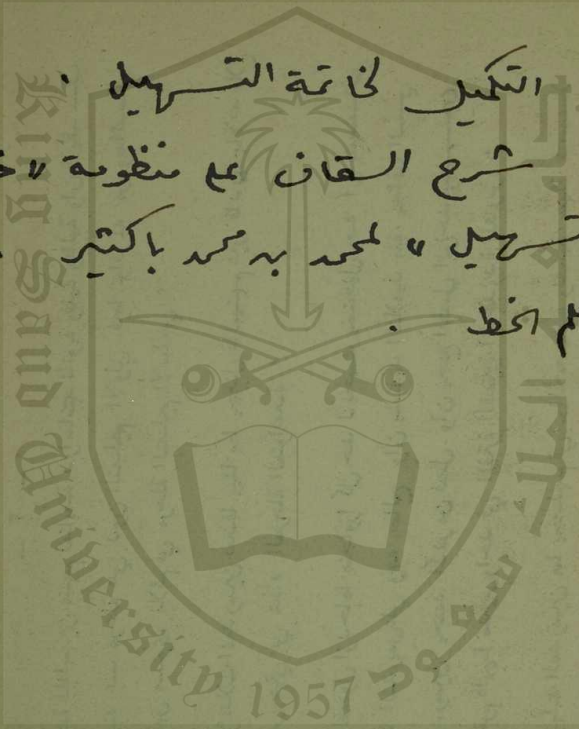 التكميل لخاتمة التسهيل .
شرح السقاف على منظومة « خ
تسهيل » لمحمد بن محمد باكثير
لم الخط .
King Saud University 1957